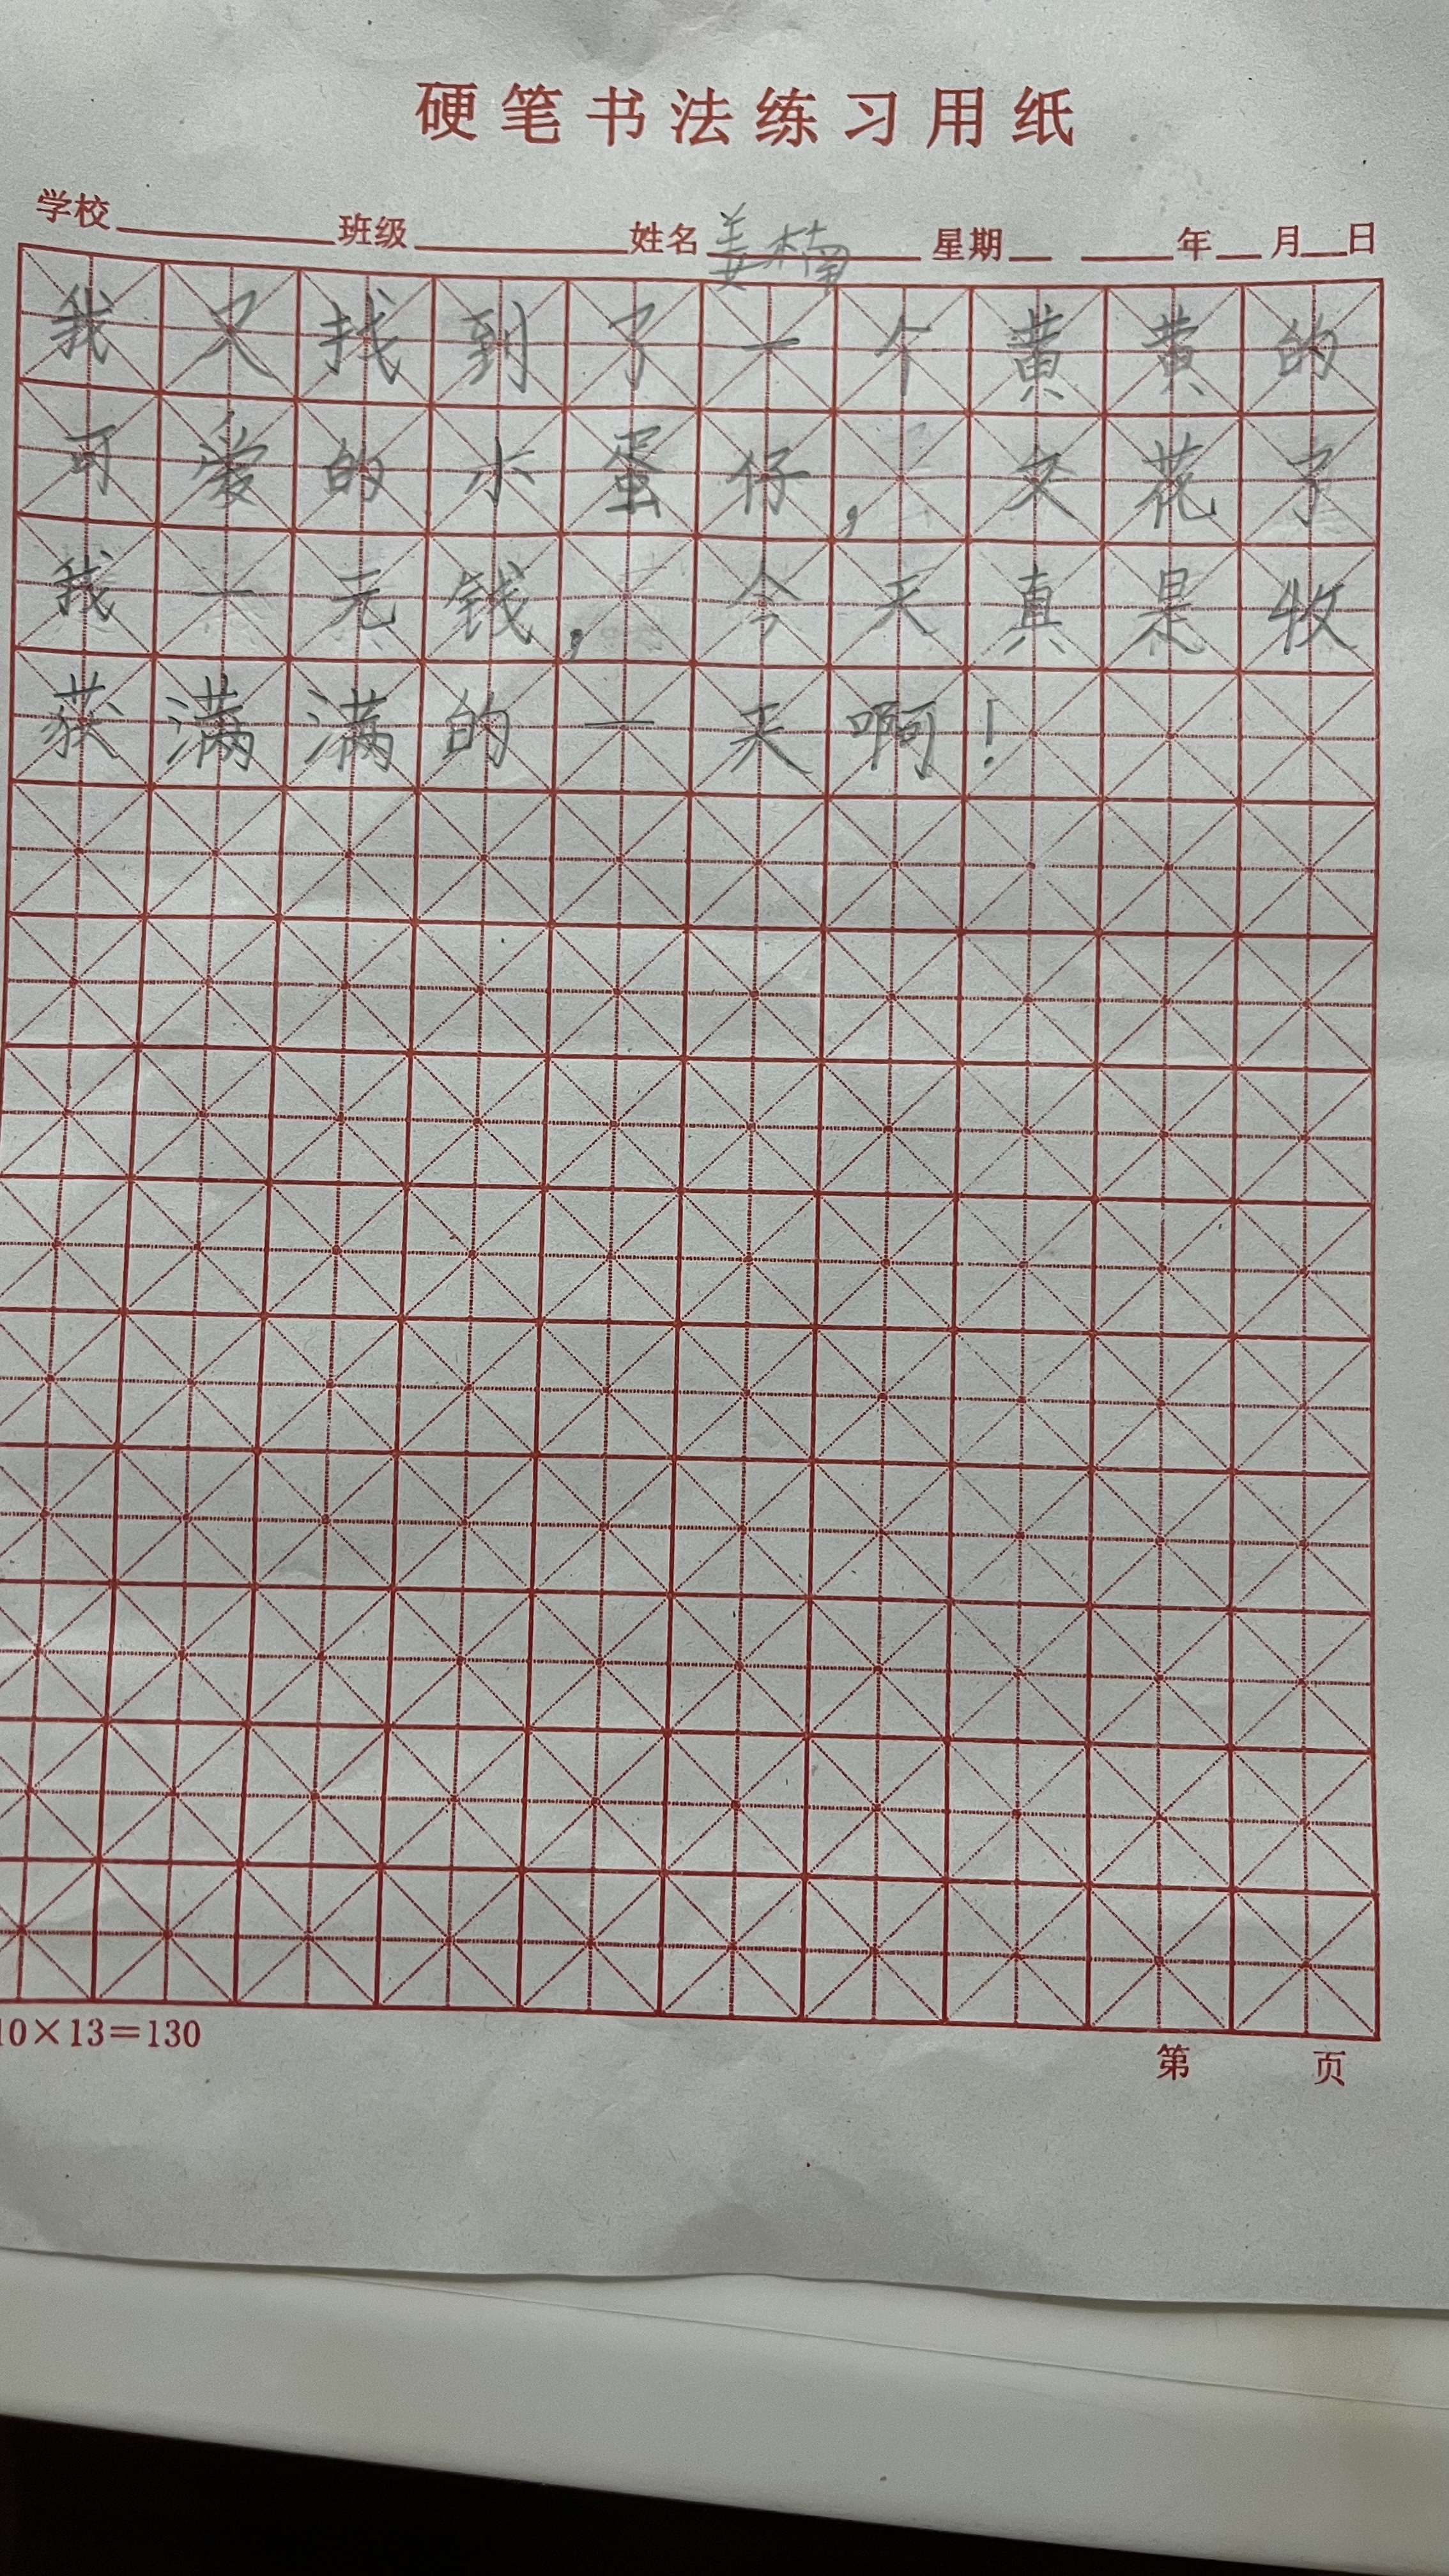 硬笔书法练习用纸
学校 班级 姓名 姜楠 星期 年 月 日
我又找到了一个黄黄的
可爱的小蛋仔，又花了
我一元钱，今天真是收
获满满的一天啊！
10×13=130
第 页